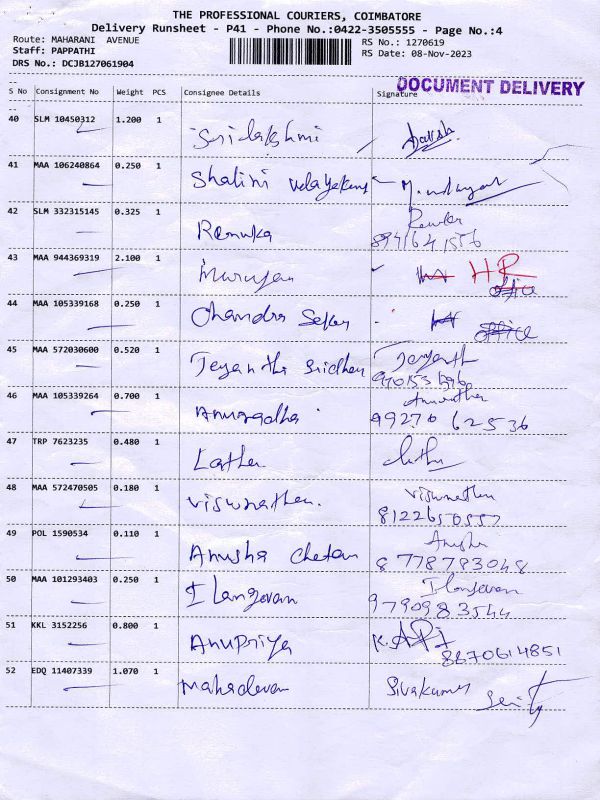 THE PROFESSIONAL COURIERS, COIMBATORE
Delivery Runsheet - P41 - Phone No.:0422-3505555 - Page No.:4
Route: MAHARANI AVENUE
Staff: PAPPATHI
DRS No.: DCJB127061904
RS No.: 1270619
RS Date: 08-Nov-2023
DOCUMENT DELIVERY
S No Consignment No Weight PCS Consignee Details Signature
40 SLM 10450312 1.200 1
Sridakshmi
41 MAA 106240864 0.250 1
Shalini
42 SLM 332315145 0.325 1
Renuka
8941641556
43 MAA 944369319 2.100 1
Murugan HR
office
44 MAA 105339168 0.250 1
Chandra Seker office
45 MAA 572030600 0.520 1
Jeyanthi Sridhar Jeyanth
46 MAA 105339264 0.700 1
Anuradha
99270 62536
47 TRP 7623235 0.480 1
Latha
48 MAA 572470505 0.180 1
Viswanathan. Viswanathan
8122650557
49 POL 1590534 0.110 1
Anusha Chetan Anusha
8778783048
50 MAA 101293403 0.250 1
Ilangovan Ilangovan
9790983544
51 KKL 3152256 0.800 1
Anupriya K.
8870614851
52 EDQ 11407339 1.070 1
Mahadevan Sivakumar